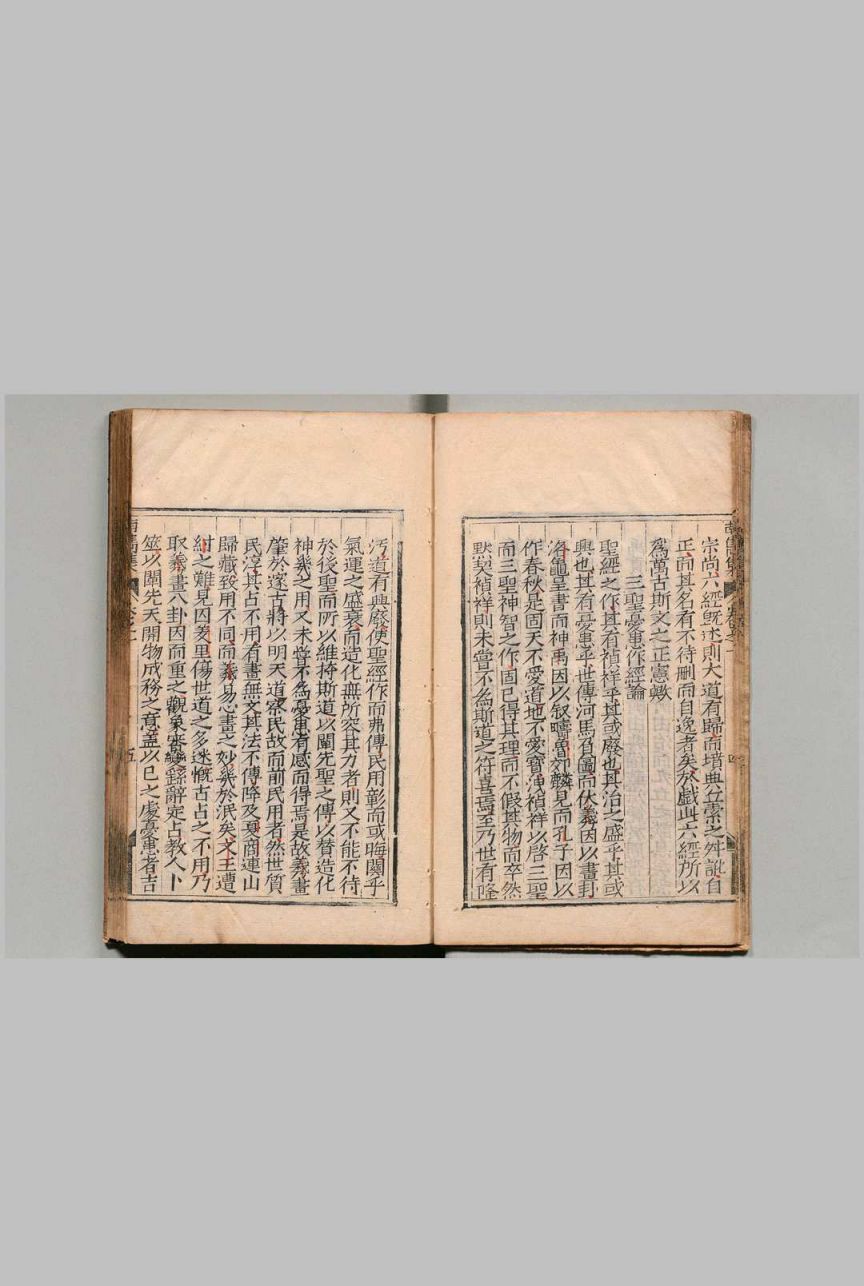 宗尚六經旣述則大道有歸而墳典丘索之舛訛自
正而其名有不待刪而自逸者矣於戲此六經所以
爲萬古斯文之正憲歟
三聖憂患作經論
聖經之作其有禎祥乎其或廢也其治之盛乎其或
興也其有憂患乎世傳河馬負圖而伏羲因以畫卦
洛龜呈書而神禹因以叙疇魯郊麟見而孔子因以
作春秋是固天不愛道地不愛寶洊禎祥以啓三聖
而三聖神智之作固已得其理而不假其物而卒然
默契禎祥則未嘗不爲斯道之符喜焉至乃世有隆
汚道有興廢使聖經作而弗傳民用彰而或晦關乎
氣運之盛衰而造化無所容其力者則又不能不待
於後聖而所以維持斯道以闡先聖之傳以替造化
神幾之用又未嘗不爲憂患有感而得焉是故羲畫
肇於邃古將以明天道察民故而前民用者然世質
民淳其占不用有畫無文其法不傳降及夏商連山
歸藏致用不同而羲易心畫之妙幾於泯矣文王遭
紂之難見囚羑里傷世道之多迷慨古占之不用乃
取羲畫八卦因而重之觀象審變繇辭定占教人卜
筮以闡先天開物成務之意盖以已之處憂患者吉